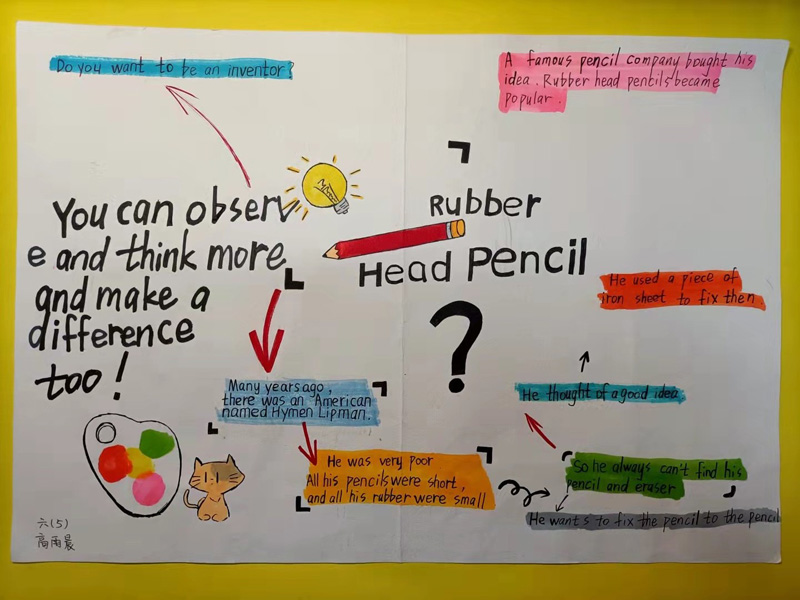 Do you want to be an inventor?
A famous pencil company bought his
idea. Rubber head pencils became
popular.
You can observ
e and think more
and make a
difference
too!
Rubber
Head Pencil
?
He used a piece of
iron sheet to fix then.
Many years ago,
there was an American
named Hymen Lipman.
He thought of a good idea
He was very poor
All his pencils were short,
and all his rubber were small
So he always can't find his
pencil and eraser
He wants to fix the pencil to the pencil
六(5)
高雨晨